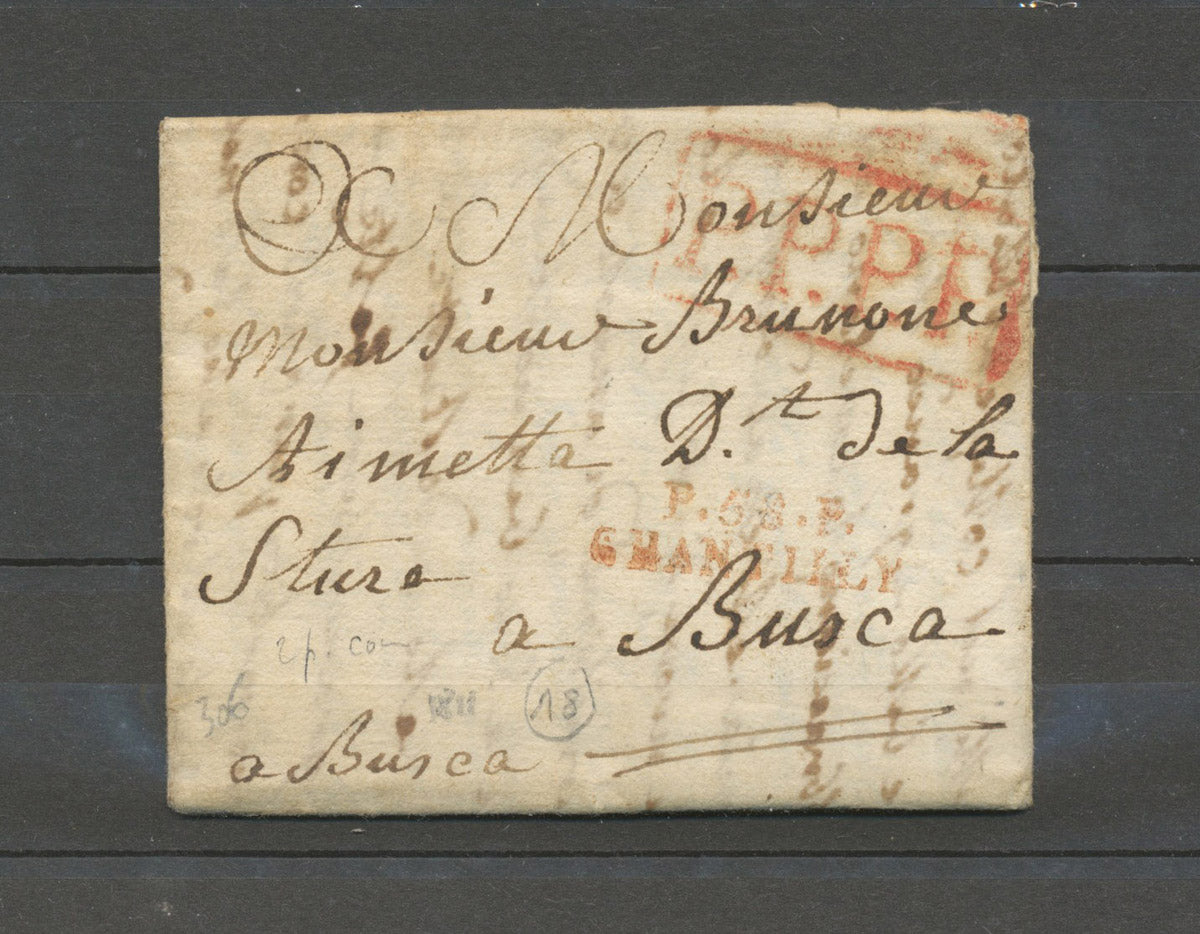 A Monsieur
P.P.P.P.
Monsieur Brunone
Aimetta D.t de la
P.68.P.
CHANTILLY
Sture
a Busca
2p. com
306
1811
18
a Busca